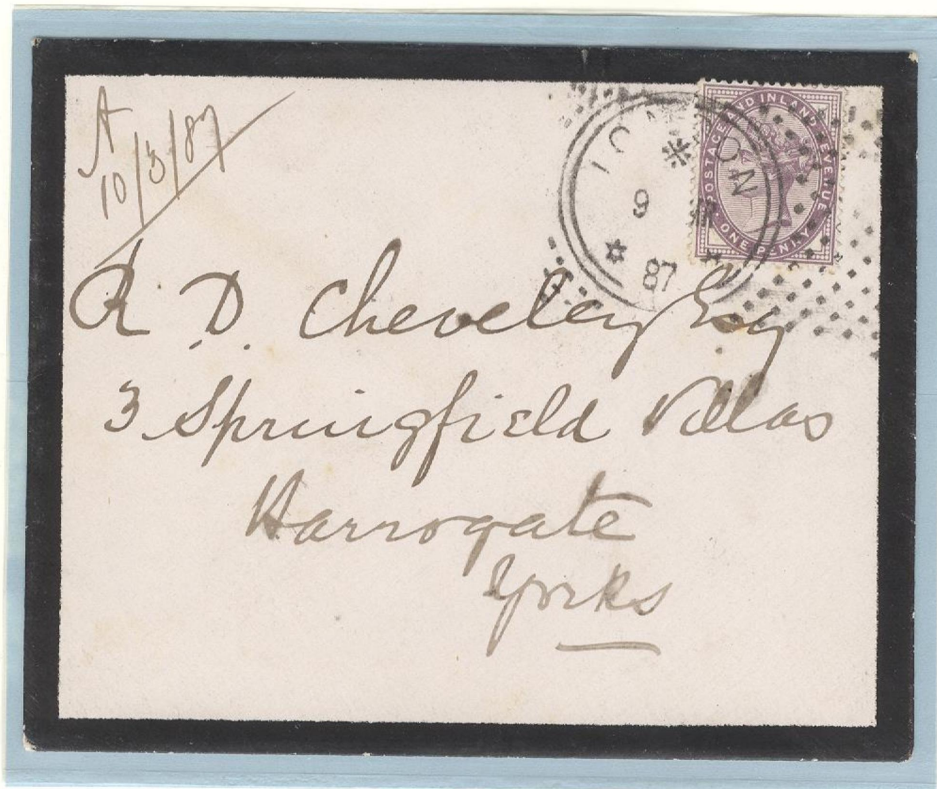 A
10/3/87
POSTAGE AND INLAND REVENUE
ONE PENNY
LONDON
9
87
R D. Cheveley Esq
3 Springfield Villas
Harrogate
Yorks